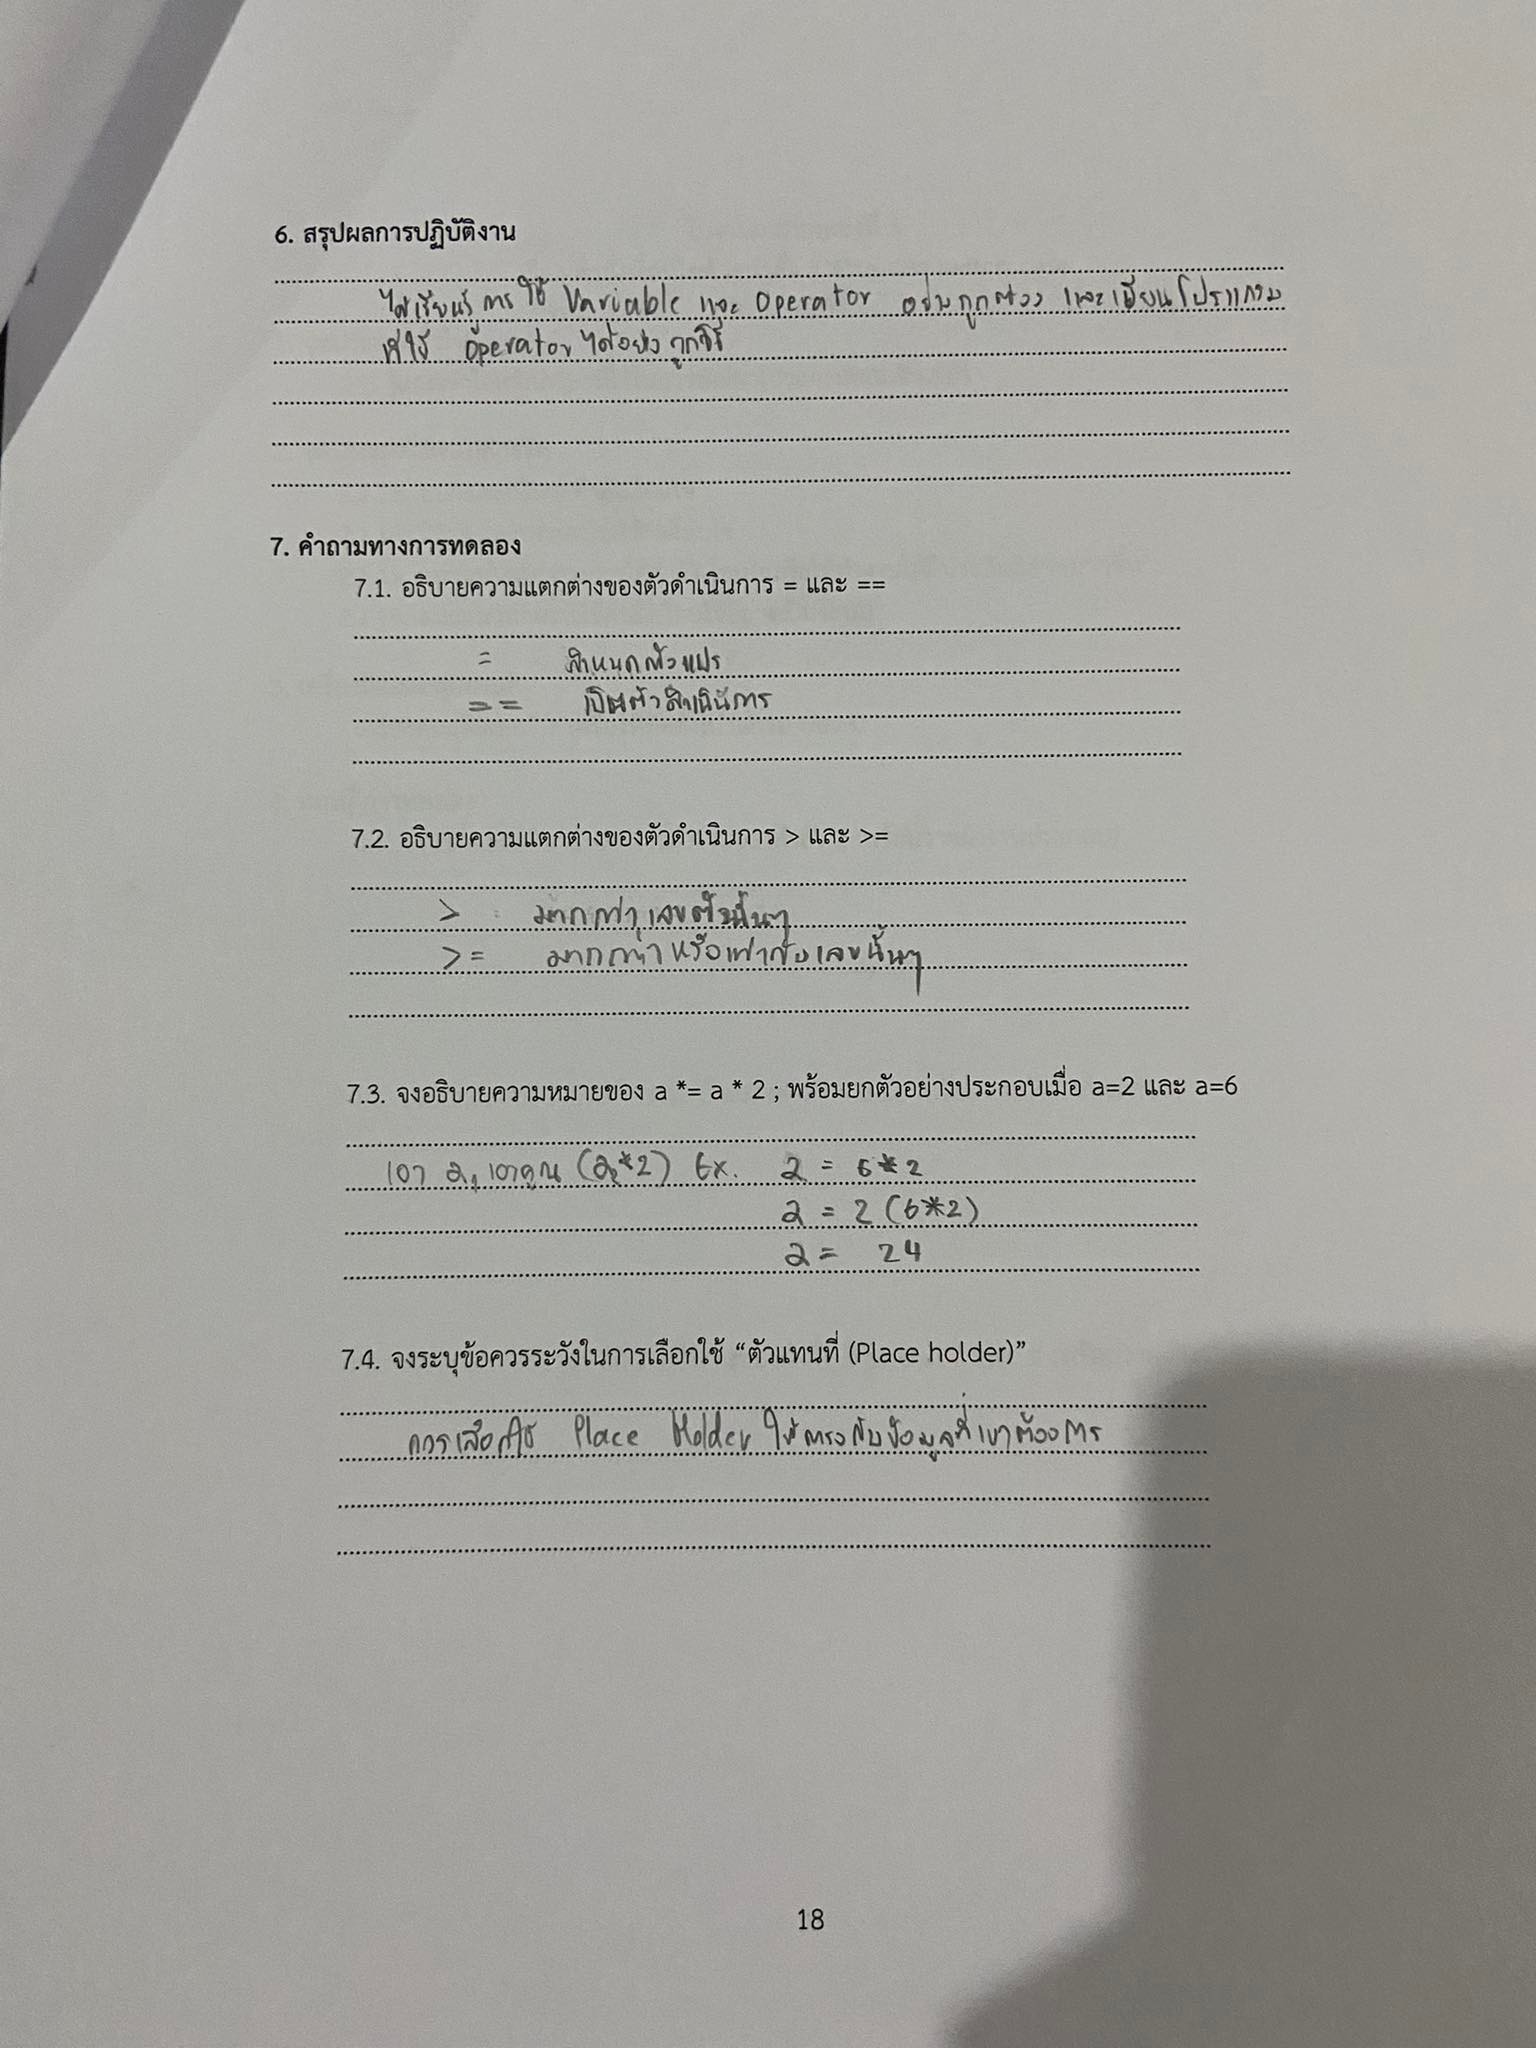 6. สรุปผลการปฏิบัติงาน
ได้เรียนรู้การใช้ Variable และ Operator อย่างถูกต้อง และเขียนโปรแกรม
ที่ใช้ Operator ได้อย่างถูกวิธี
7. คำถามทางการทดลอง
7.1. อธิบายความแตกต่างของตัวดำเนินการ = และ ==
= กำหนดตัวแปร
== เป็นตัวดำเนินการ
7.2. อธิบายความแตกต่างของตัวดำเนินการ > และ >=
> มากกว่าเลขตัวนั้นๆ
>= มากกว่าหรือเท่ากับเลขนั้นๆ
7.3. จงอธิบายความหมายของ a *= a * 2 ; พร้อมยกตัวอย่างประกอบเมื่อ a=2 และ a=6
เอา a, เอาคูณ (a₂*2) Ex. a = 6*2
a = 2 (6*2)
a = 24
7.4. จงระบุข้อควรระวังในการเลือกใช้ “ตัวแทนที่ (Place holder)”
ควรเลือกใช้ Place Holder ให้ตรงกับข้อมูลที่เราต้องการ
18